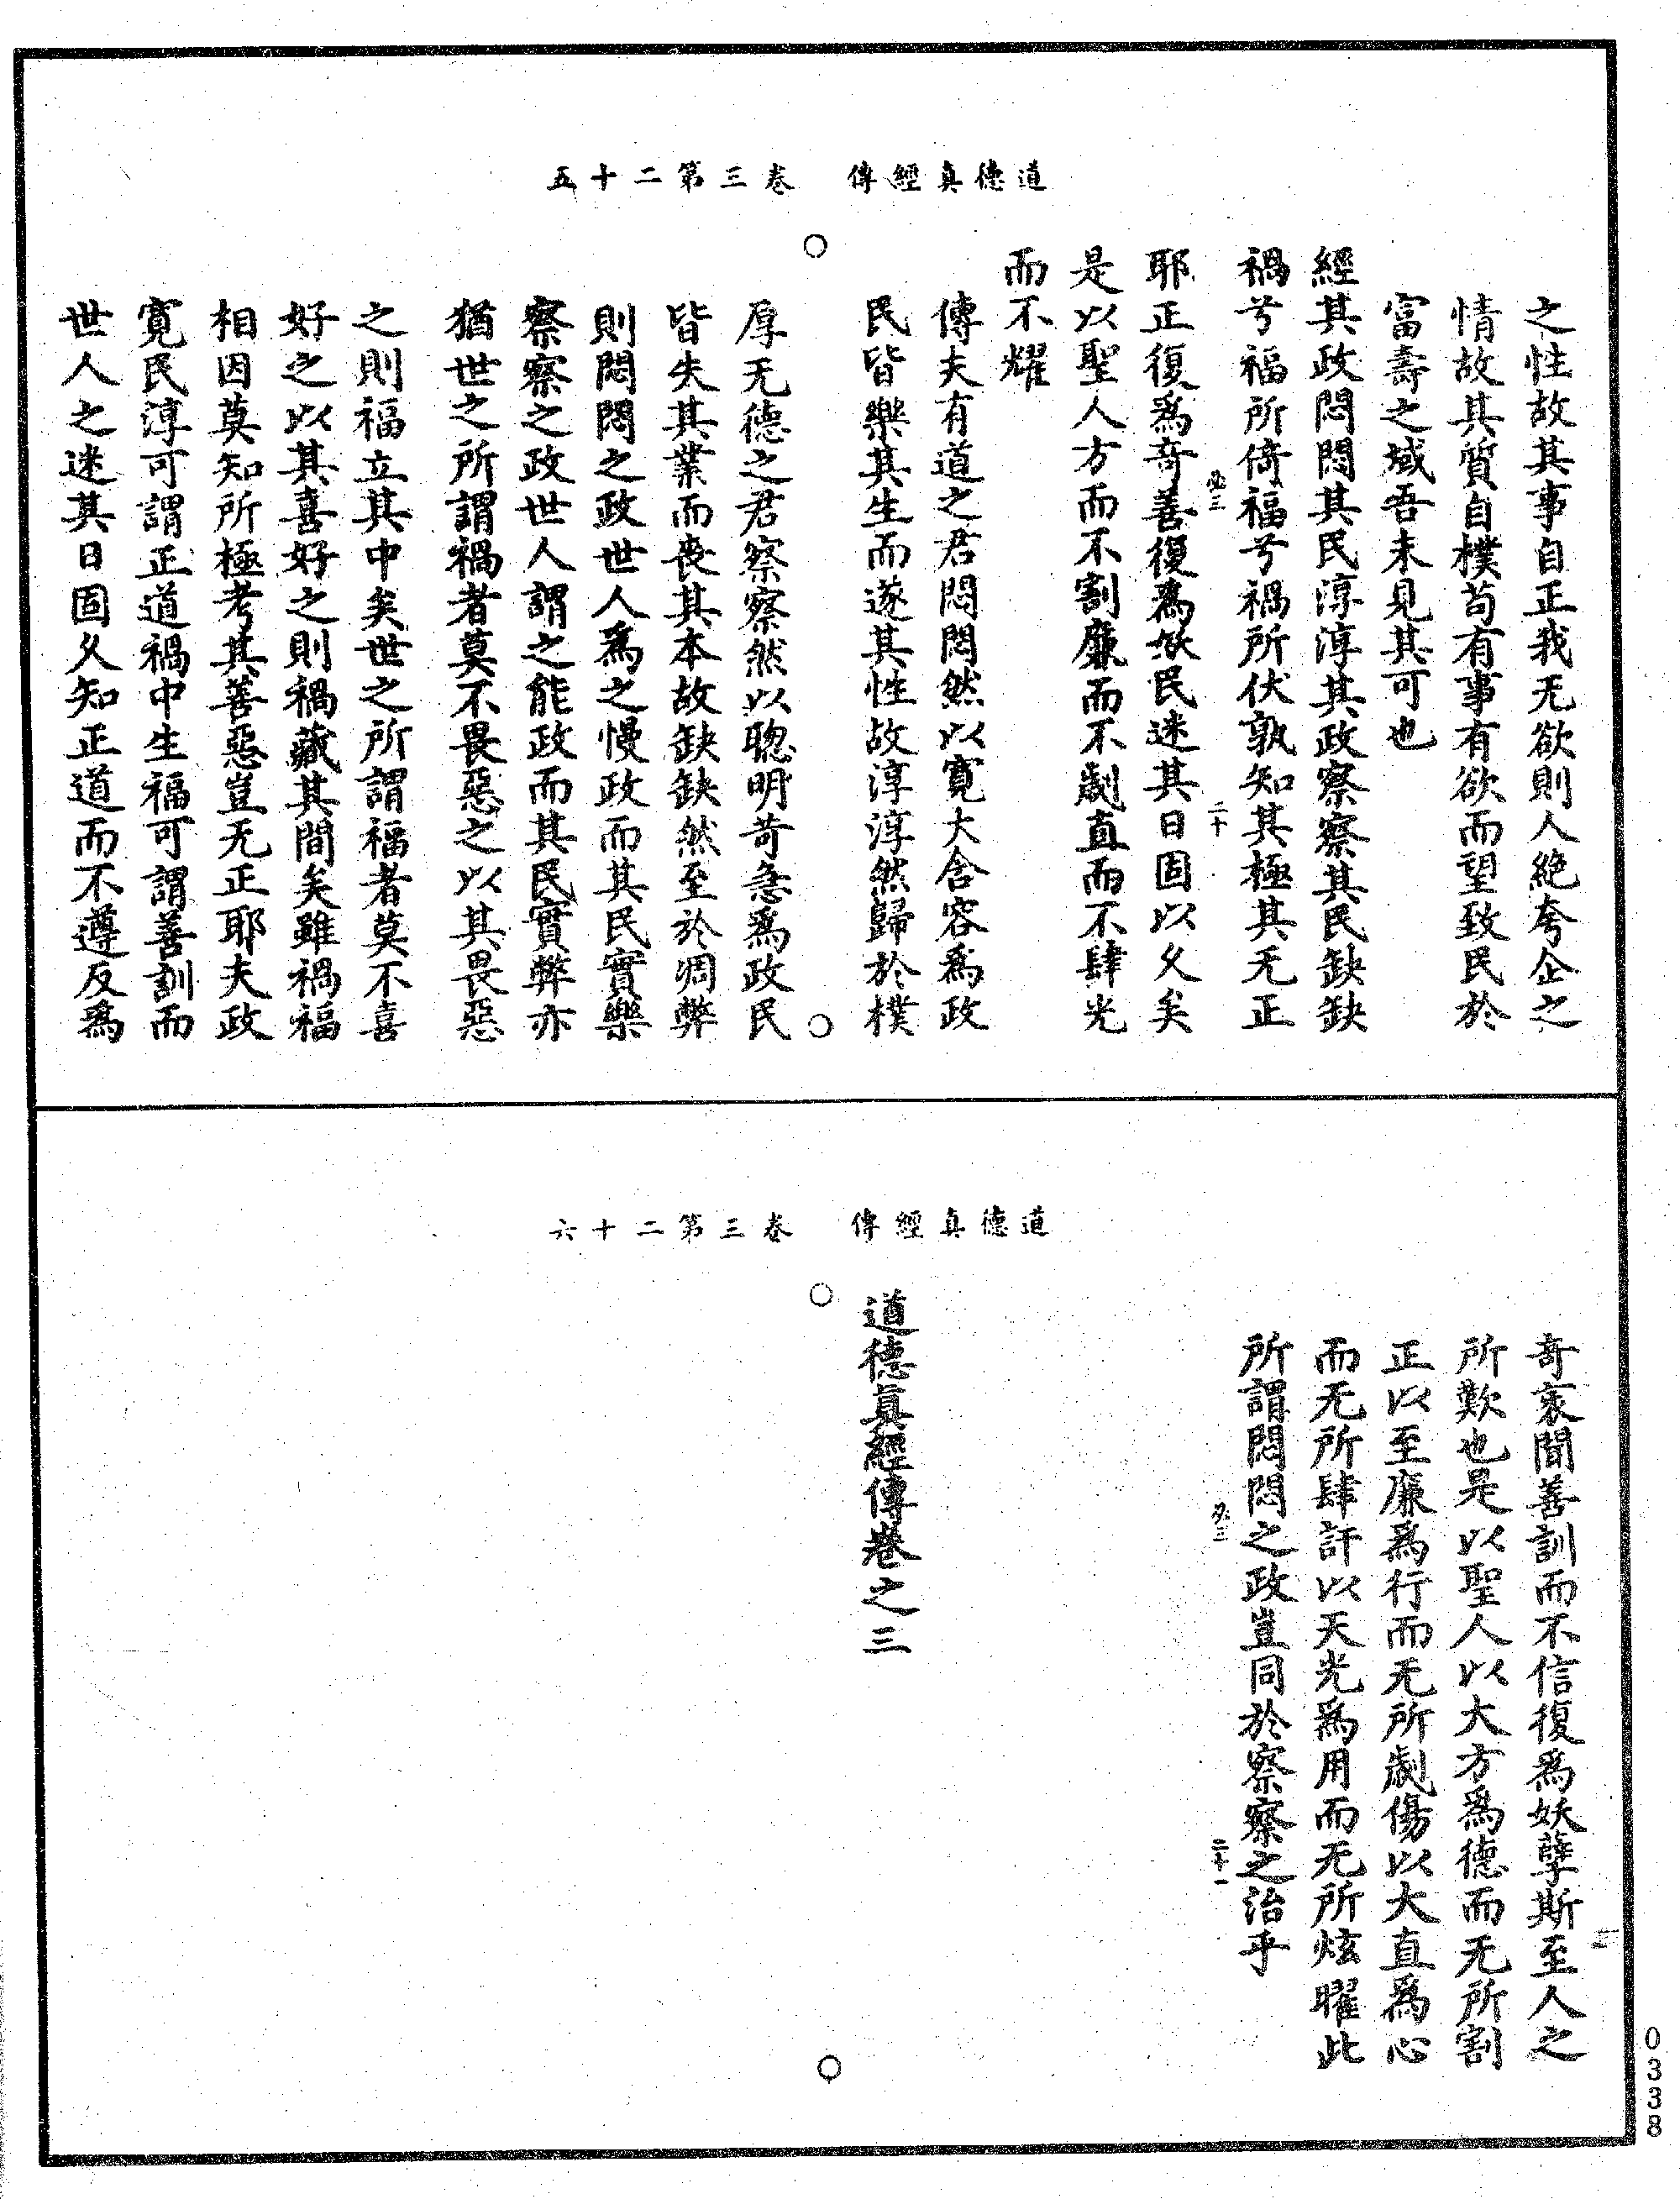 道德真經傳　卷三第二十五
之性故其事自正我无欲則人絶夸企之
情故其質自樸苟有事有欲而望致民於
富壽之域吾未見其可也
經其政悶悶其民淳淳其政察察其民缺缺
禍兮福所倚福兮禍所伏孰知其極其无正
必三　二十
耶正復爲奇善復爲妖民迷其日固以久矣
是以聖人方而不割廉而不劌直而不肆光
而不耀
傳夫有道之君悶悶然以寛大含容爲政
民皆樂其生而遂其性故淳淳然歸於樸
厚无德之君察察然以聦明苛急爲政民
皆失其業而喪其本故缺缺然至於凋弊
則悶悶之政世人爲之慢政而其民實樂
察察之政世人謂之能政而其民實弊亦
猶世之所謂禍者莫不畏惡之以其畏惡
之則福立其中矣世之所謂福者莫不喜
好之以其喜好之則禍藏其間矣雖禍福
相因莫知所極考其善惡豈无正耶夫政
寛民淳可謂正道禍中生福可謂善訓而
世人之迷其日固久知正道而不遵反爲
道德真經傳　卷三第二十六
奇衺聞善訓而不信復爲妖孽斯至人之
所歎也是以聖人以大方爲德而无所割
正以至廉爲行而无所劌傷以大直爲心
而无所肆訐以天光爲用而无所炫曜此
所謂悶悶之政豈同於察察之治乎
必三　二十一
道德眞經傳卷之三
0338